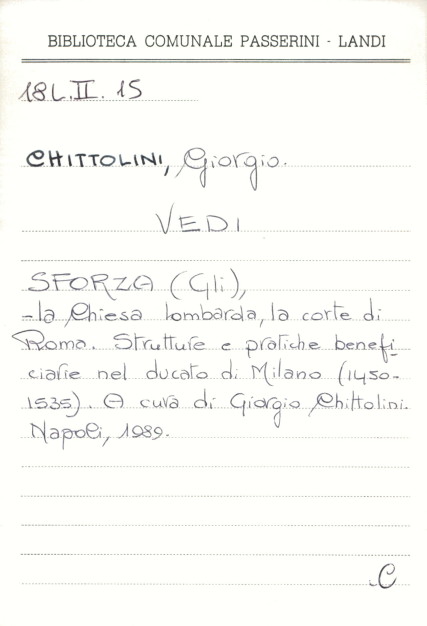 BIBLIOTECA COMUNALE PASSERINI - LANDI
18L.II. 15
CHITTOLINI, Giorgio.
VEDI
SFORZA (Gli),
-la Chiesa lombarda, la corte di
Roma. Strutture e pratiche benefi-
ciarie nel ducato di Milano (1450-
1535). A cura di Giorgio Chittolini.
Napoli, 1989.
C